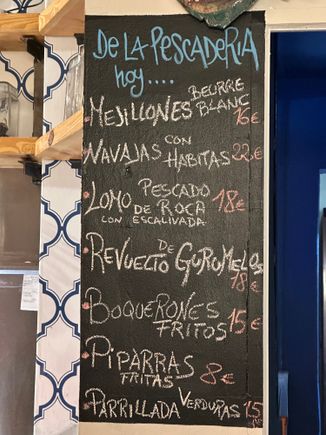 DE LA PESCADERIA
hoy....
MEJILLONES BEURRE BLANC 16€
NAVAJAS CON HABITAS 22€
LOMO PESCADO DE ROCA 18€
CON ESCALIVADA
REVUELTO DE GURUMELOS
18€
BOQUERONES
FRITOS 15€
PIPARRAS
FRITAS 8€
PARRILLADA VERDURAS 15